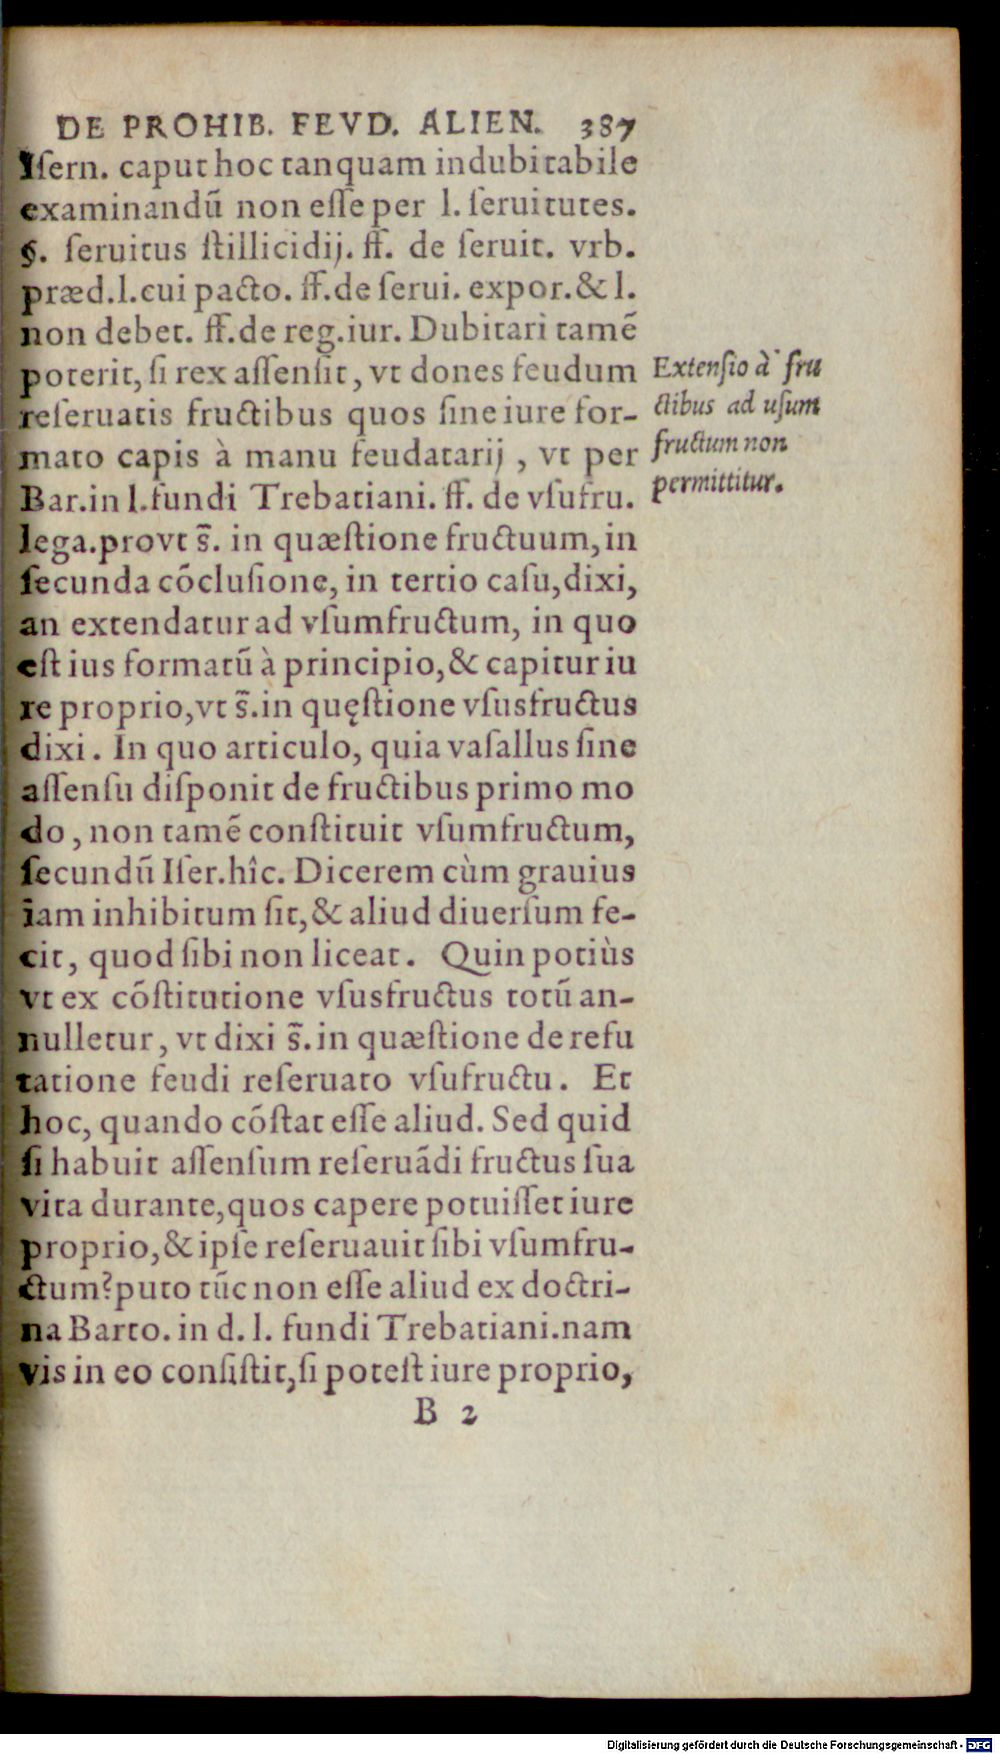 DE PROHIB. FEVD. ALIEN. 387
Iſern. caput hoc tanquam indubitabile
examinandū non eſſe per l. ſeruitutes.
§. ſeruitus ſtillicidij. ff. de ſeruit. vrb.
præd.l.cui pacto. ff.de ſerui. expor.& l.
non debet. ff.de reg.iur. Dubitari tamẽ
poterit, ſi rex aſſenſit, vt dones feudum
reſeruatis fructibus quos ſine iure for-
mato capis à manu feudatarij , vt per
Bar.in l.fundi Trebatiani. ff. de vſufru.
lega.provt s̃. in quæſtione fructuum, in
ſecunda cōcluſione, in tertio caſu, dixi,
an extendatur ad vſumfructum, in quo
eſt ius formatū à principio, & capitur iu
re proprio, vt s̃.in quęſtione vſusfructus
dixi. In quo articulo, quia vaſallus ſine
aſſenſu diſponit de fructibus primo mo
do, non tamẽ conſtituit vſumfructum,
ſecundū Iſer.hîc. Dicerem cùm grauius
iam inhibitum ſit, & aliud diuerſum fe-
cit, quod ſibi non liceat. Quin potiùs
vt ex cōſtitutione vſusfructus totū an-
nulletur, vt dixi s̃. in quæſtione de refu
tatione feudi reſeruato vſufructu. Et
hoc, quando cōſtat eſſe aliud. Sed quid
ſi habuit aſſenſum reſeruādi fructus ſua
vita durante, quos capere potuiſſet iure
proprio, & ipſe reſeruauit ſibi vſumfru-
ctum? puto tūc non eſſe aliud ex doctri-
na Barto. in d. l. fundi Trebatiani. nam
vis in eo conſiſtit, ſi poteſt iure proprio,
B 2
Extenſio à fru
ctibus ad uſum
fructum non
permittitur.
Digitalisierung gefördert durch die Deutsche Forschungsgemeinschaft - DFG